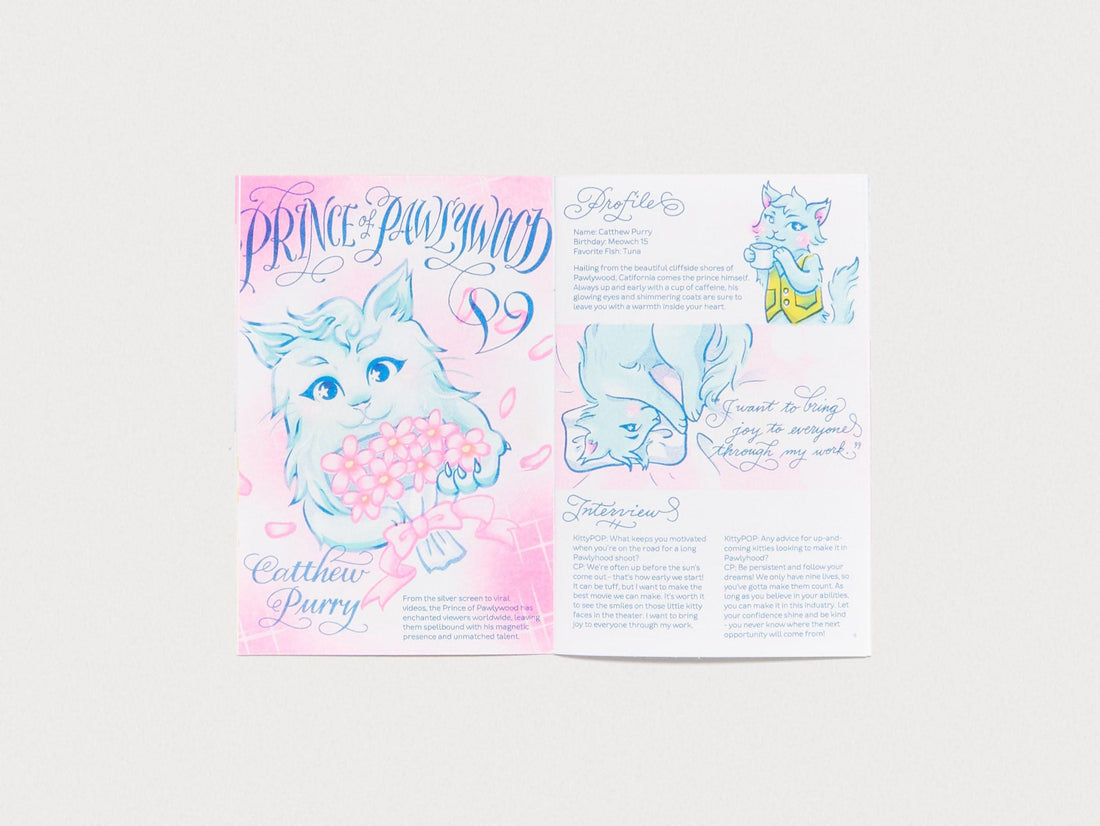 PRINCE of PAWLYWOOD
Catthew
Purry
From the silver screen to viral
videos, the Prince of Pawlywood has
enchanted viewers worldwide, leaving
them spellbound with his magnetic
presence and unmatched talent.
Profile
Name: Catthew Purry
Birthday: Meowch 15
Favorite Fish: Tuna
Hailing from the beautiful cliffside shores of
Pawlywood, Catifornia comes the prince himself.
Always up and early with a cup of caffeine, his
glowing eyes and shimmering coats are sure to
leave you with a warmth inside your heart.
"I want to bring
joy to everyone
through my work."
Interview
KittyPOP: What keeps you motivated
when you're on the road for a long
Pawlyhood shoot?
CP: We're often up before the sun's
come out - that's how early we start!
It can be tuff, but I want to make the
best movie we can make. It's worth it
to see the smiles on those little kitty
faces in the theater. I want to bring
joy to everyone through my work.
KittyPOP: Any advice for up-and-
coming kitties looking to make it in
Pawlyhood?
CP: Be persistent and follow your
dreams! We only have nine lives, so
you've gotta make them count. As
long as you believe in your abilities,
you can make it in this industry. Let
your confidence shine and be kind
- you never know where the next
opportunity will come from!